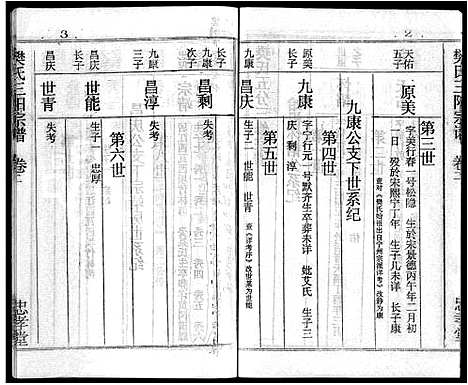 樊氏三阳宗谱 卷二
2
第三世
天佑
五子
原美
字美行春一号松隐 生於宋景德丙午年二月初
一日 殁於宋熙宁丁年 生子几未详 长子康
九康公支下世系纪
第四世
原美
长子
九康
字宁行元一号默齐生卒葬未详 妣艾氏 生子三
庆 剩 淳
第五世
九康
长子
昌庆
生子二 世能 世青
改世某为世能
忠孝堂
3
九康
次子
昌剩
失考
九康
三子
昌淳
失考
第六世
昌庆
长子
世能
生子一 忠厚
昌庆
次子
世青
失考
樊氏三阳宗谱 卷二
忠孝堂